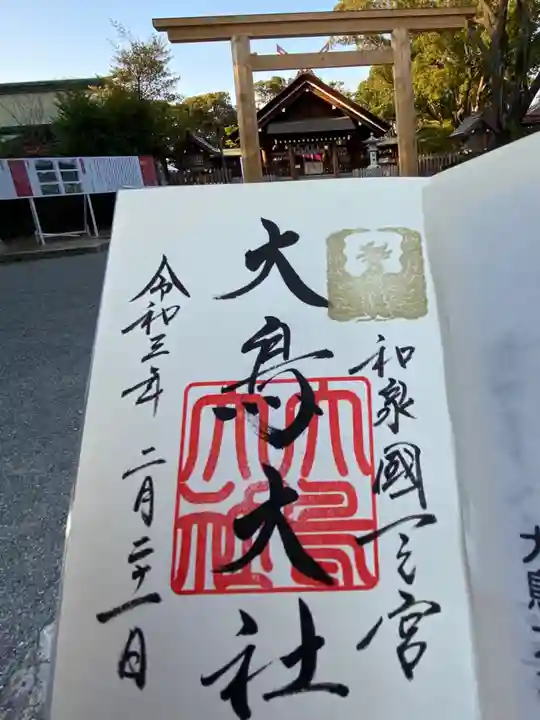 和泉國一之宮
大鳥大社
令和三年 二月二十一日
大鳥
大社